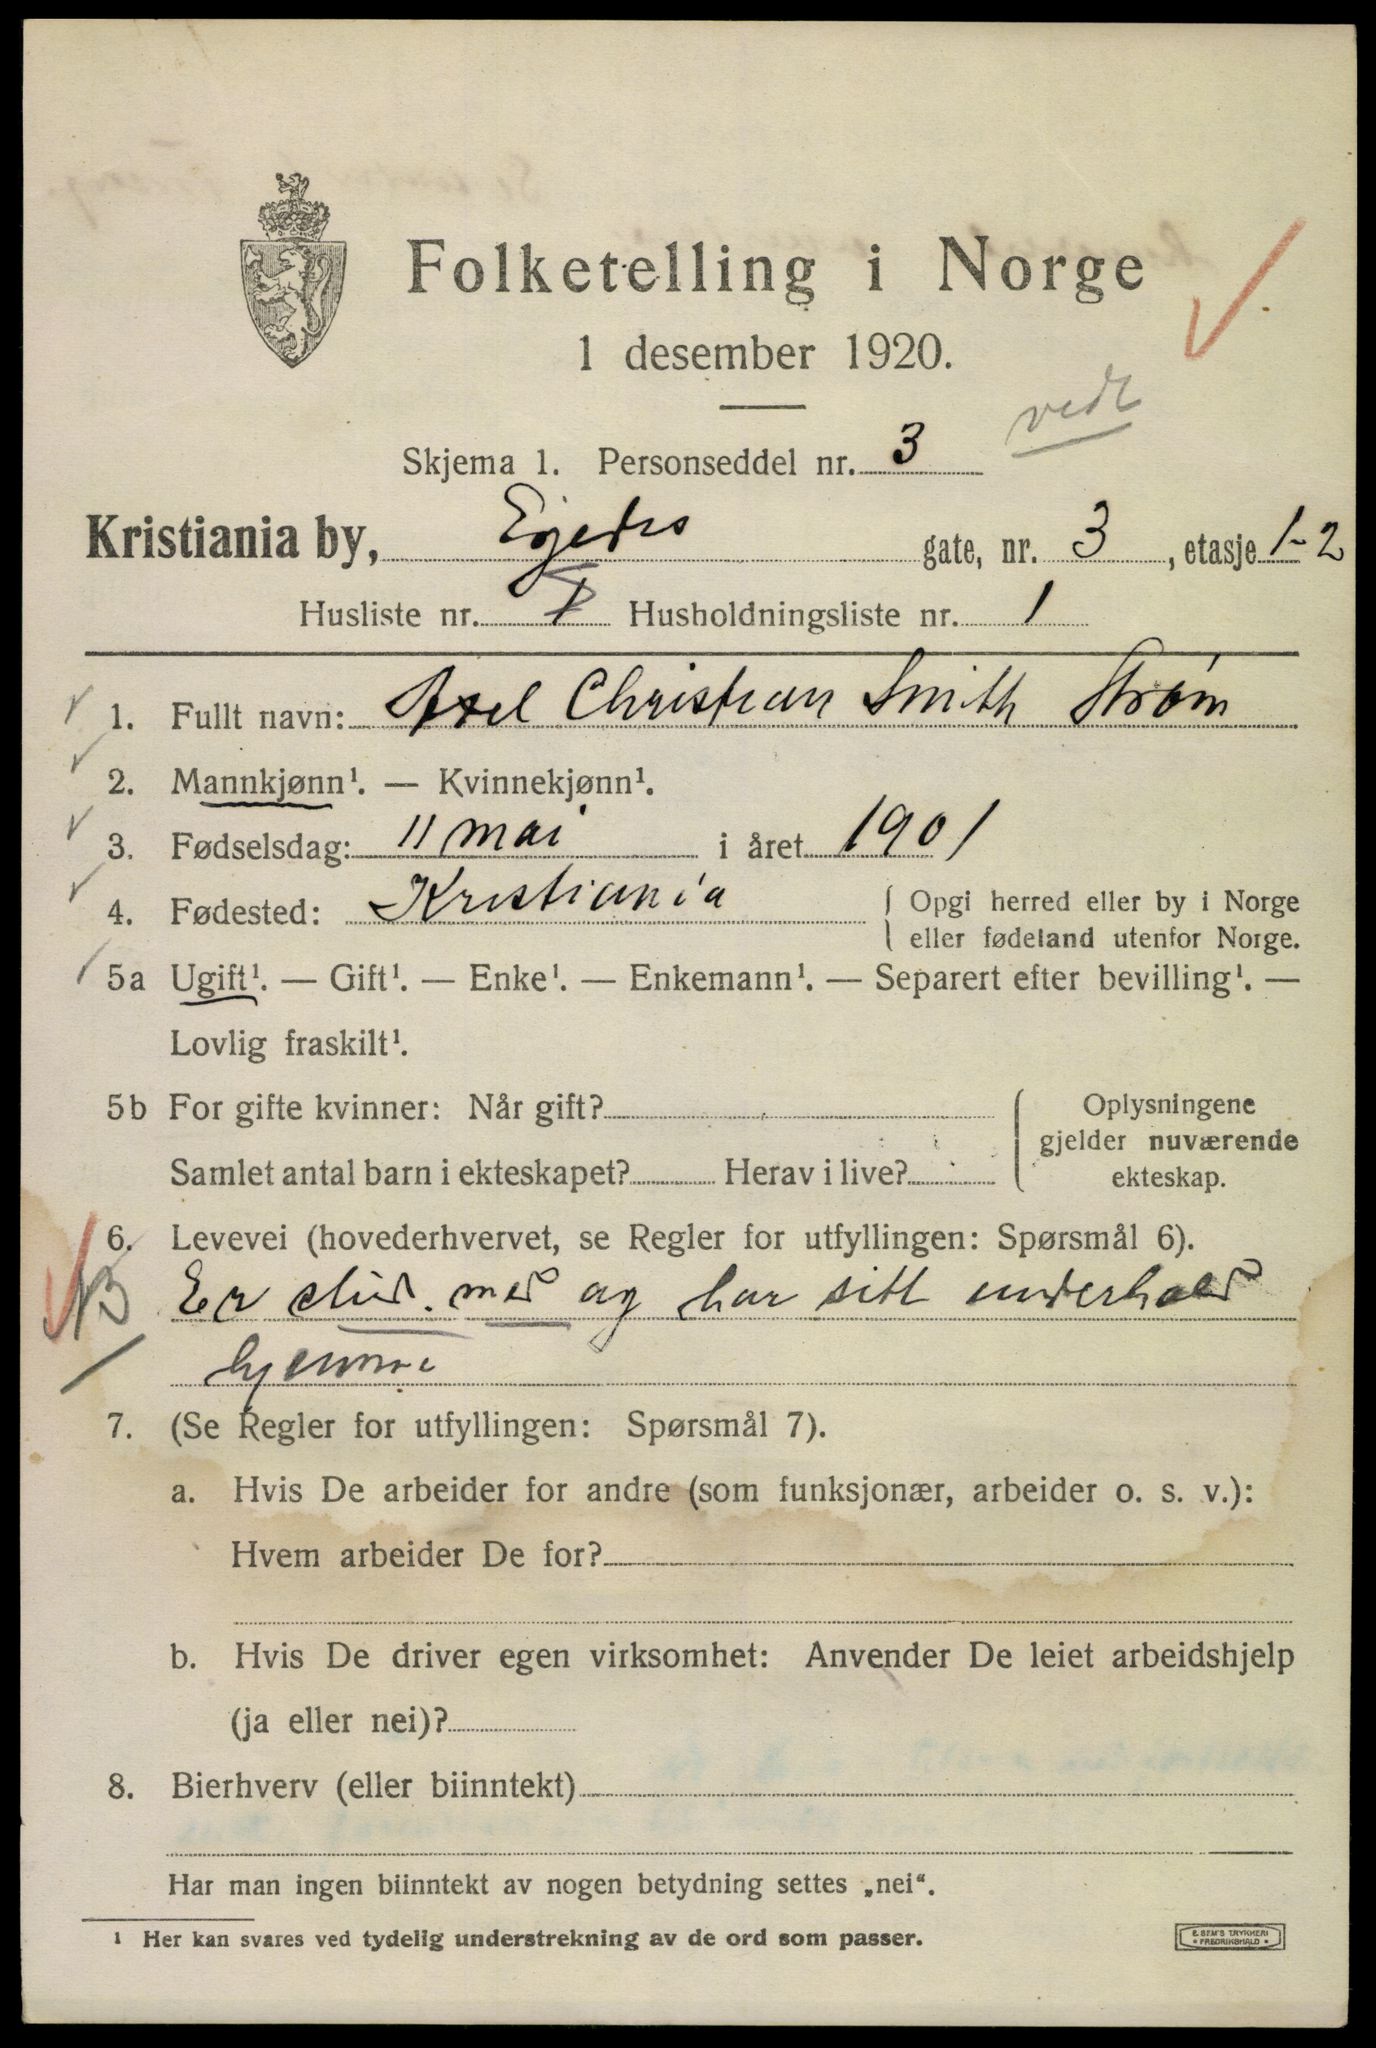 Folketelling i Norge
1 desember 1920.
vedl
Skjema 1. Personseddel nr. 3
Kristiania by, Egedes gate, nr. 3, etasje 1-2
Husliste nr. 1 Husholdningsliste nr. 1
1. Fullt navn: Axel Christian Smith Strøm
2. Mannkjønn¹. — Kvinnekjønn¹.
3. Fødselsdag: 11 mai i året 1901
4. Fødested: Kristiania { Opgi herred eller by i Norge
eller fødeland utenfor Norge.
5a Ugift¹. — Gift¹. — Enke¹. — Enkemann¹. — Separert efter bevilling¹. —
Lovlig fraskilt¹.
5b For gifte kvinner: Når gift? { Oplysningene
gjelder nuværende
Samlet antal barn i ekteskapet? Herav i live? ekteskap.
6. Levevei (hovederhvervet, se Regler for utfyllingen: Spørsmål 6).
NB Er stud. med og har sitt underhold
hjemme
7. (Se Regler for utfyllingen: Spørsmål 7).
a. Hvis De arbeider for andre (som funksjonær, arbeider o. s. v.):
Hvem arbeider De for?
b. Hvis De driver egen virksomhet: Anvender De leiet arbeidshjelp
(ja eller nei)?
8. Bierhverv (eller biinntekt)
Har man ingen biinntekt av nogen betydning settes „nei“.
¹ Her kan svares ved tydelig understrekning av de ord som passer.
E SEM'S TRYKKERI
* FREDRIKSHALD *